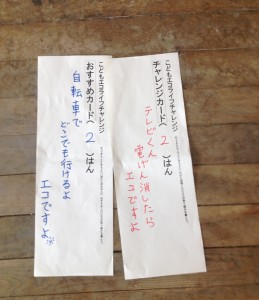 こどもエコライフチャレンジ
チャレンジカード( 2 )はん
テレビくん
電げん消したら
エコですよ
こどもエコライフチャレンジ
おすすめカード( 2 )はん
自転車で
どこでも行けるよ
エコですよ